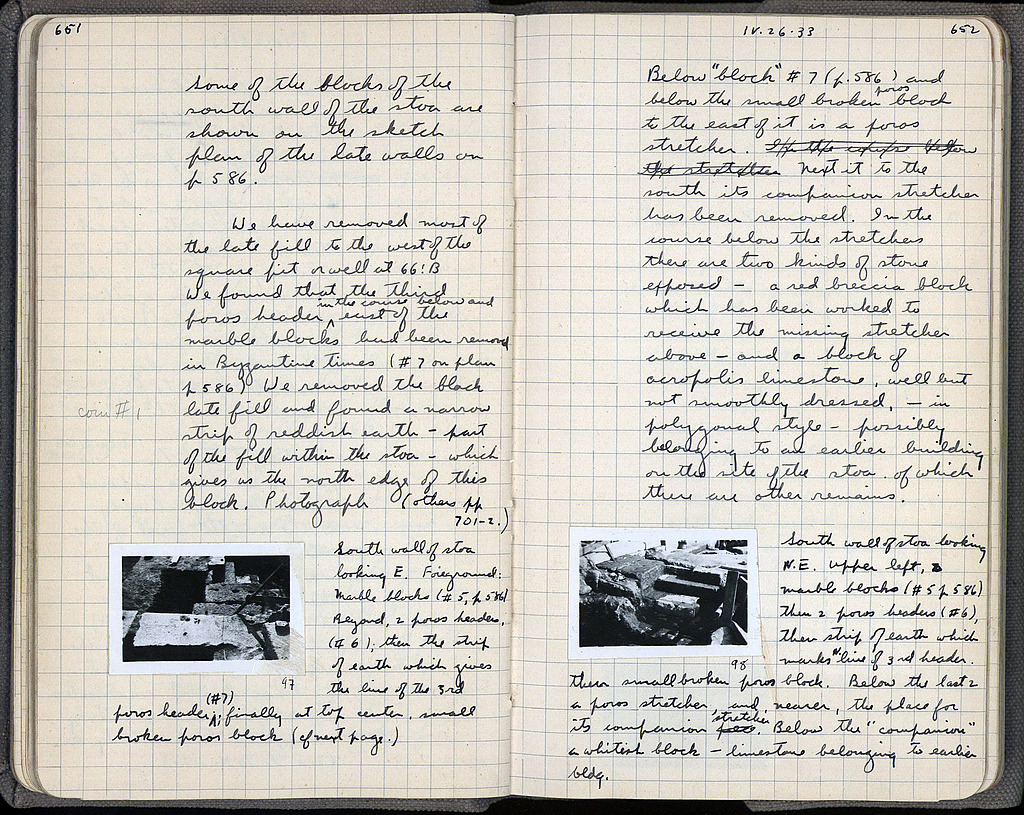 651
Some of the blocks of the
south wall of the stoa are
shown on the sketch
plan of the late walls on
p 586.
We have removed most of
the late fill to the west of the
square pit or well at 66/B
We found that the third
in the course below and
poros header ^ east of the
marble blocks had been removed
in Byzantine times (#7 on plan
p 586) We removed the black
coin #1
late fill and found a narrow
strip of reddish earth – part
of the fill within the stoa – which
gives us the north edge of this
block. Photograph (others pp
701-2.)
South wall of stoa
looking E. Foreground:
marble blocks (#5, p 586)
Beyond, 2 poros headers,
(#6), then the strip
of earth which gives
97
the line of the 3rd
(#7)
poros header ^, finally at top center, small
broken poros block (cf next page.)
IV.26.33
652
Below "block" #7 (p. 586) and
poros
below the small broken block
to the east of it is a poros
stretcher. In the course below
the stretcher Next it to the
south its companion stretcher
has been removed. In the
course below the stretchers
there are two kinds of stone
exposed – a red breccia block
which has been worked to
receive the missing stretcher
above – and a block of
acropolis limestone, well but
not smoothly dressed, – in
polygonal style – possibly
belonging to an earlier building
on the site of the stoa, of which
there are other remains.
South wall of stoa looking
N.E. Upper left,
marble blocks (#5 p 586)
then 2 poros headers (#6),
then strip of earth which
marks N line of 3rd header.
98
then small broken poros block. Below the last 2
a poros stretcher, and, nearer, the place for
stretcher
its companion. Below the "companion"
a whitish block – limestone belonging to earlier
bldg.